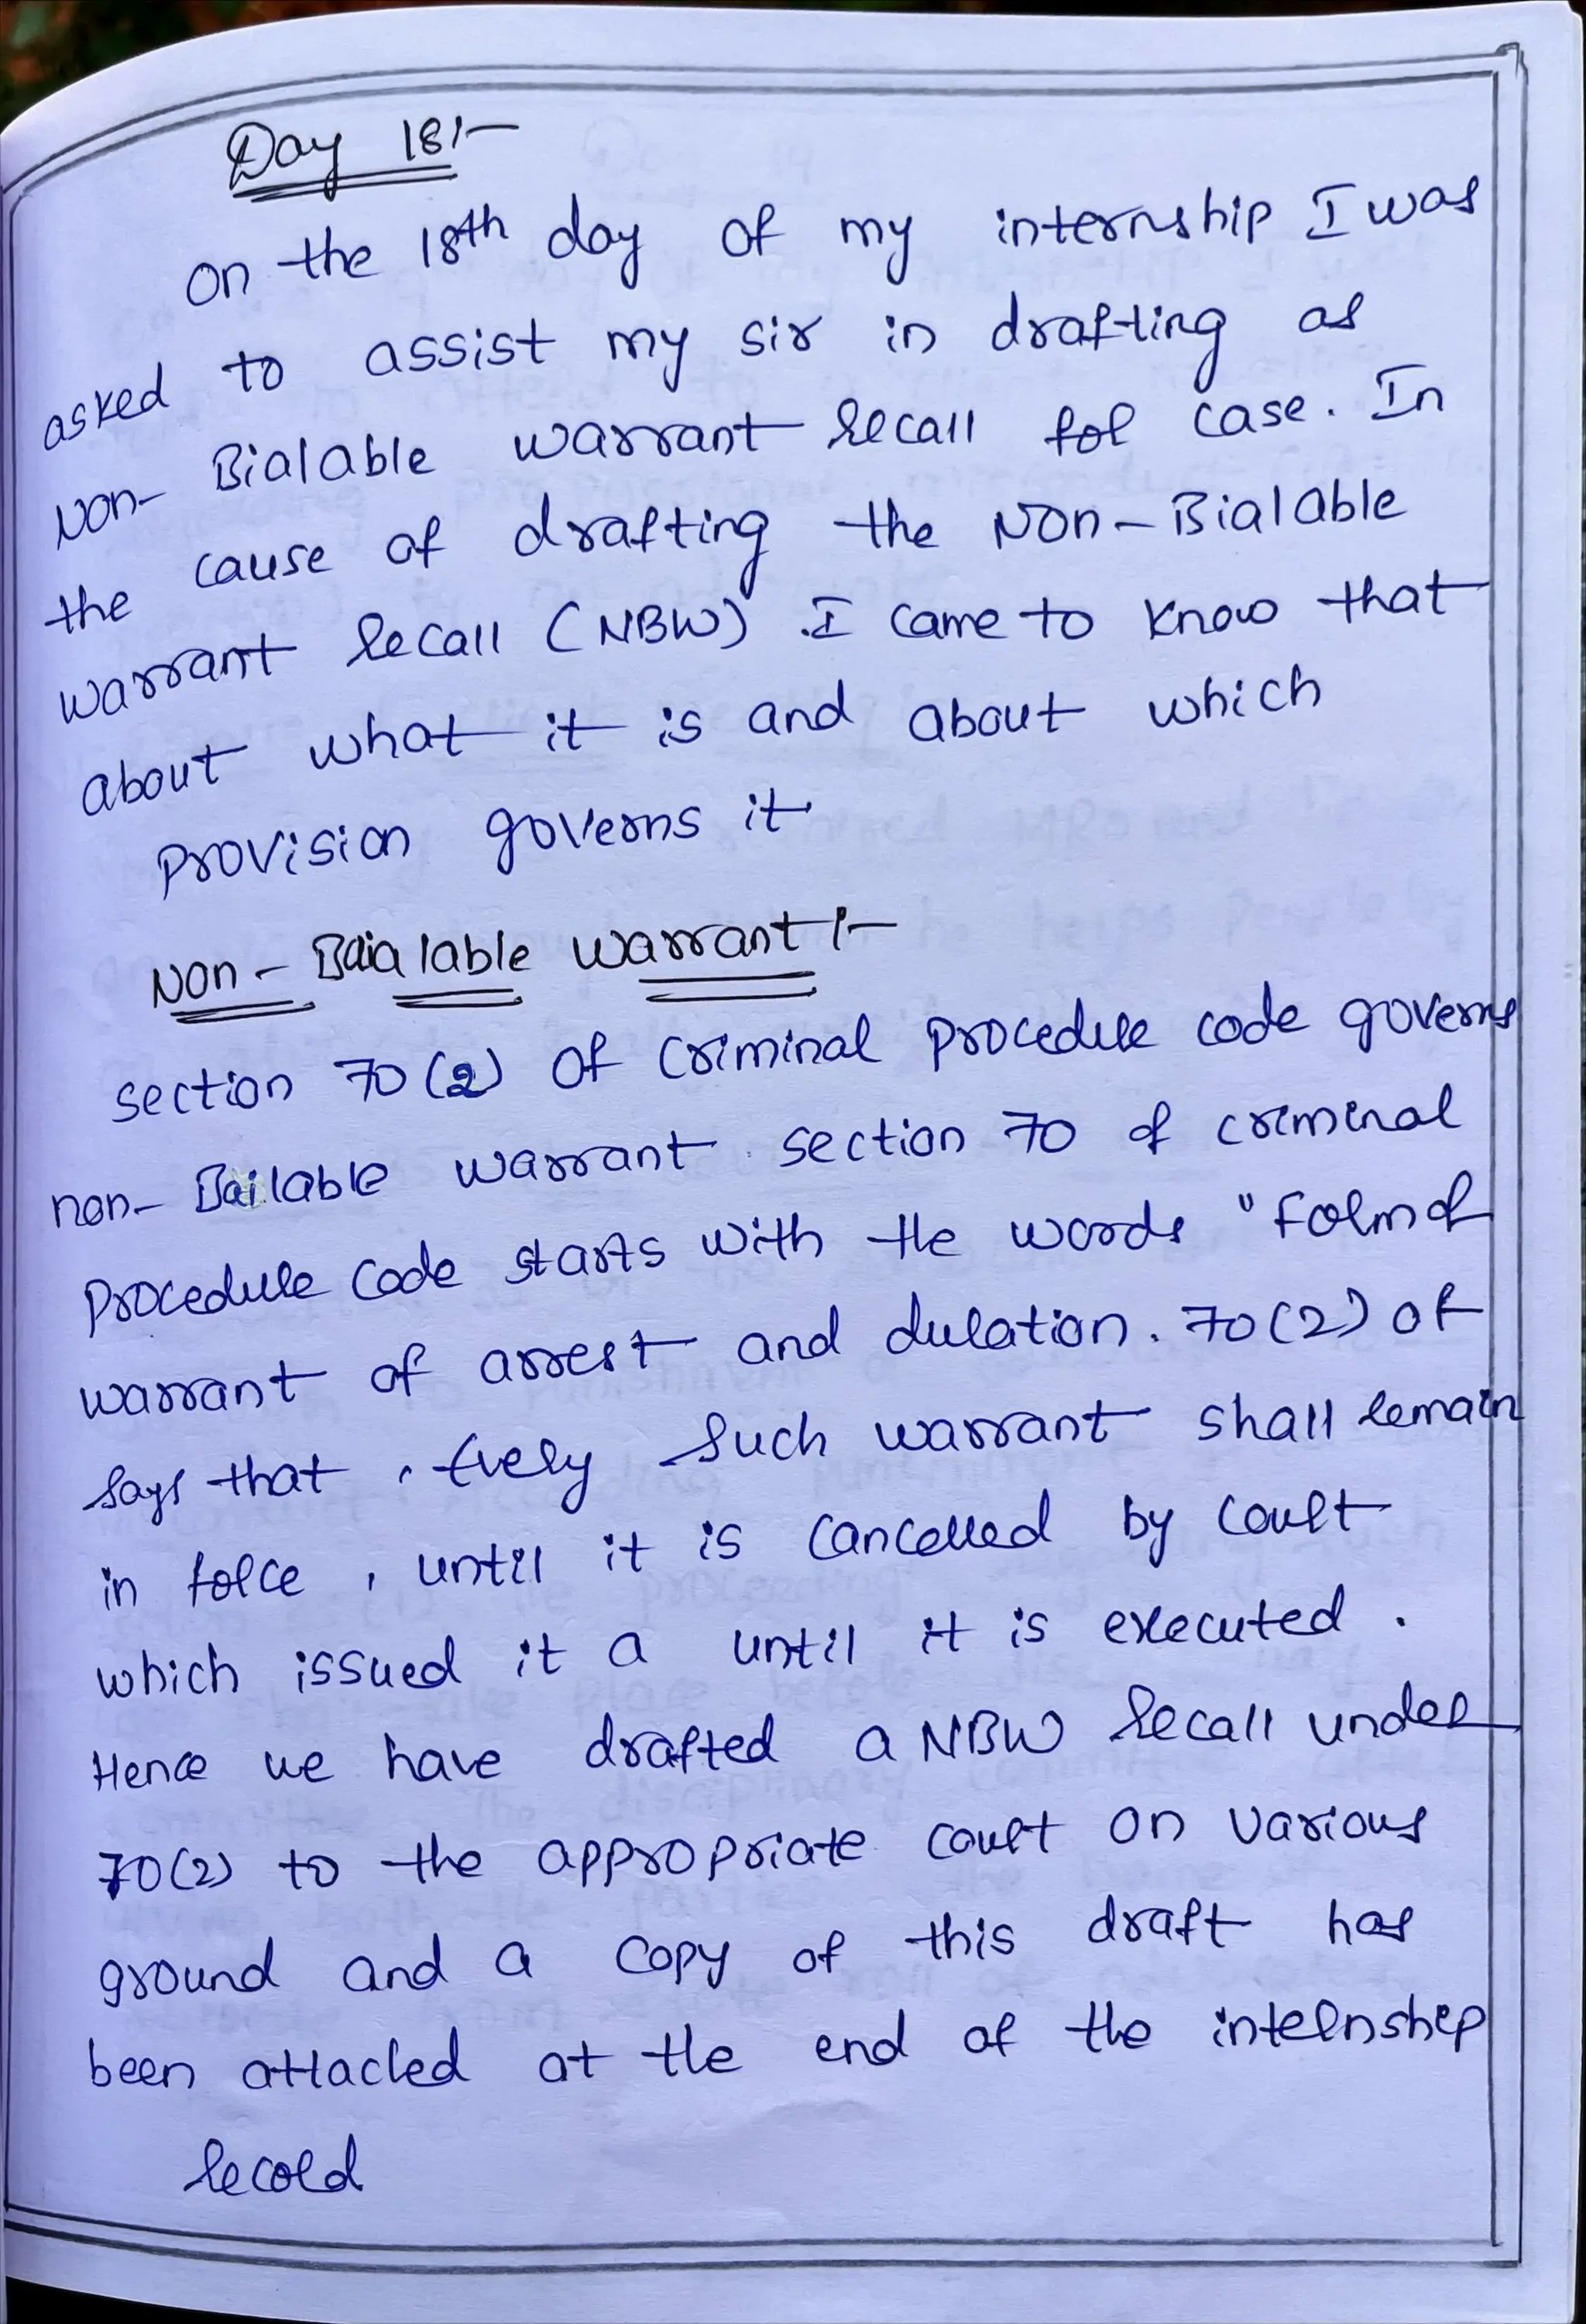 Day 18:-
On the 18th day of my internship I was
asked to assist my sir in drafting as
Non- Bialable warrant Recall for case. In
the cause of drafting the Non-Bialable
warrant Recall (NBW) .I came to know that
about what it is and about which
provision governs it
Non- Baialable warrant :-
section 70(2) Of Criminal procedure code governs
non- Bailable warrant. section 70 of criminal
procedure Code starts with the words "Form of
warrant of arrest and duration. 70(2) of
says that , Every such warrant shall remain
in force , until it is Cancelled by Court
which issued it a until it is executed .
Hence we have drafted a NBW Recall under
70(2) to the appropriate court on various
ground and a copy of this draft has
been attached at the end of the internship
Record